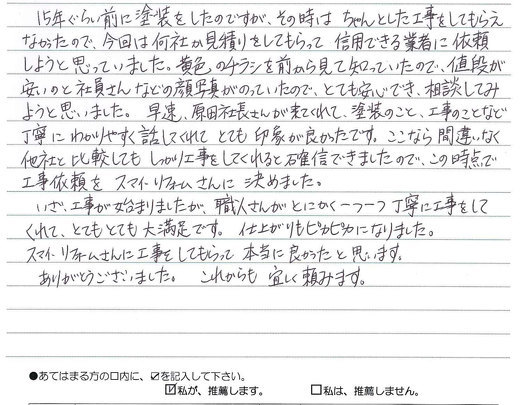 15年ぐらい前に塗装をしたのですが、その時は ちゃんとした工事をしてもらえ
なかったので、今回は何社か見積りをしてもらって 信用できる業者に依頼
しようと思っていました。黄色のチラシを前から見て知っていたので、値段が
安いのと社員さんなどの顔写真がのっていたので、とても安心でき、相談してみ
ようと思いました。 早速、原田社長さんが来てくれて、塗装のこと、工事のことなど
丁寧に わかりやすく話してくれて とても 印象が良かったです。ここなら間違いなく
他社と比較しても しっかり工事をしてくれると確信できましたので、この時点で
工事依頼を スマイルリフォームさんに 決めました。
いざ、工事が始まりましたが、職人さんがとにかく一つ一つ丁寧に工事をして
くれて、とてもとても大満足です。 仕上がりもピカピカになりました。
スマイルリフォームさんに工事をしてもらって 本当に良かったと思います。
ありがとうございました。 これからも 宜しく頼みます。
●あてはまる方の口内に、☑を記入して下さい。
☑私が、推薦します。 □私は、推薦しません。